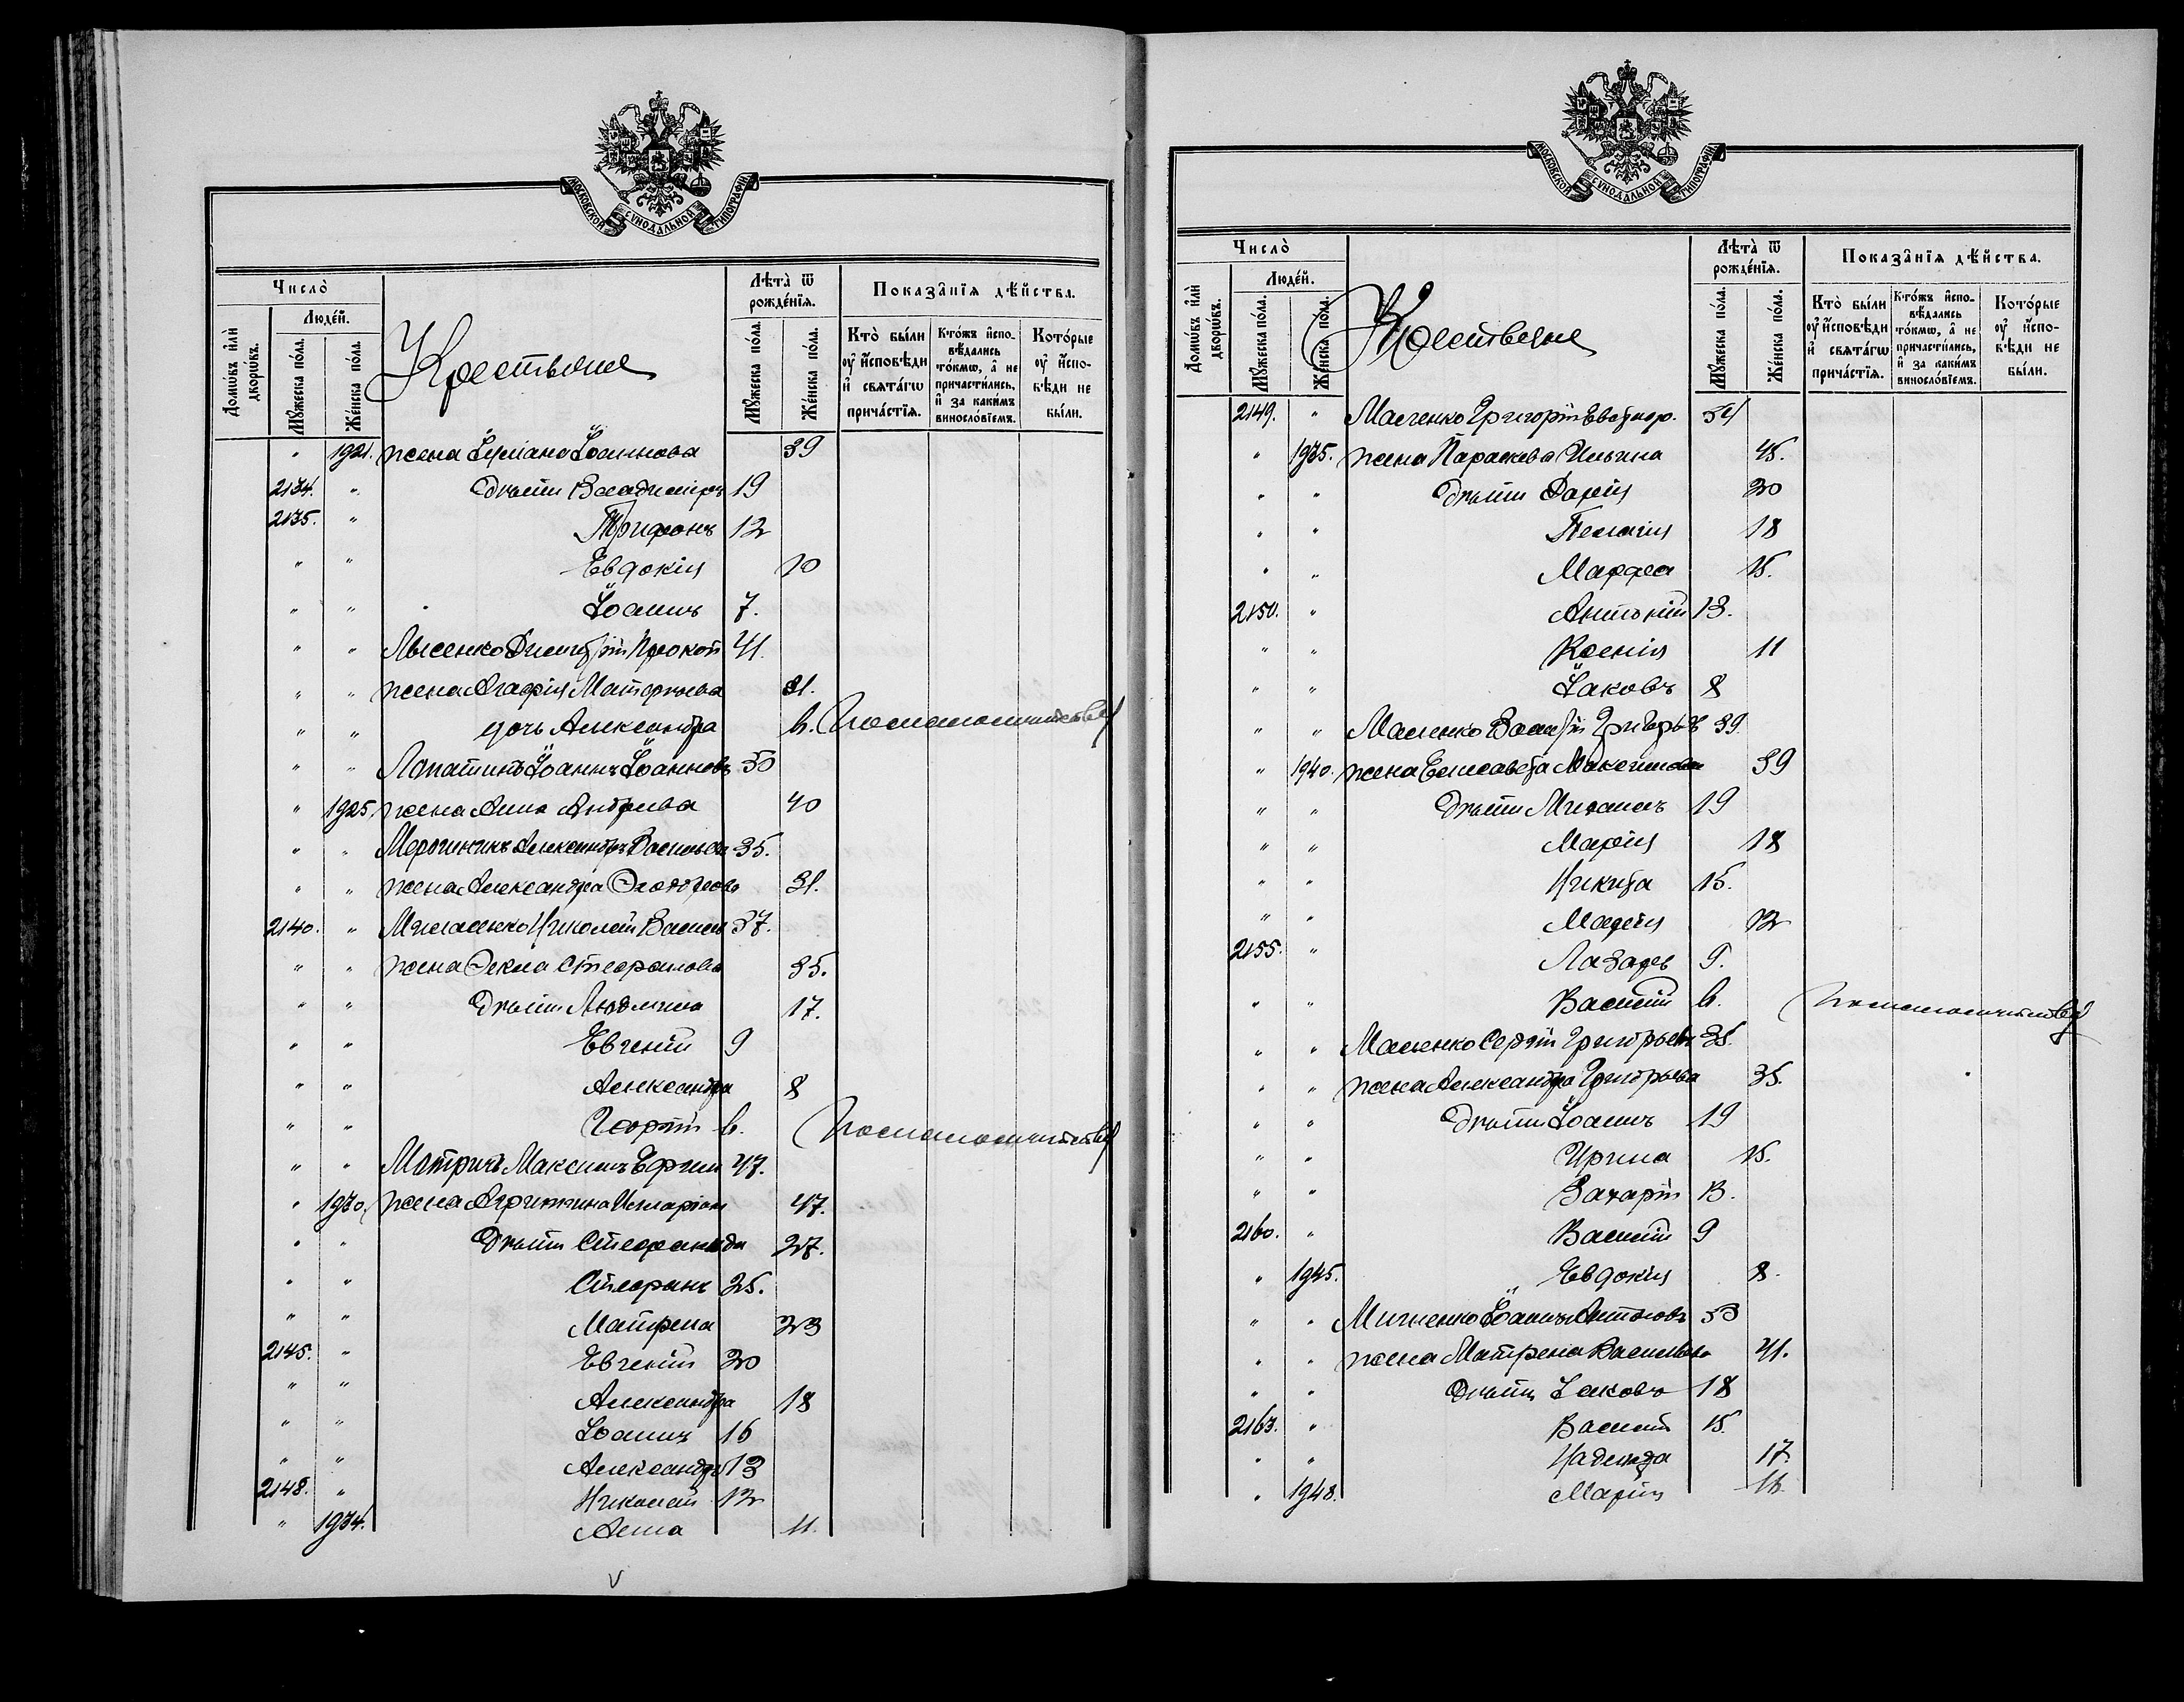 МОСКОВСКОЙ СѴНОДАЛЬНОЙ ТИПОГРАФІИ
Число̀
Людéй.
Домѡ́въ и҆лѝ дворѡ́въ.
Мꙋ́жеска по́ла.
Же́нска по́ла.
Крестьяне
Лѣ́та ѿ рожде́нїя.
Мꙋ́жеска по́ла.
Же́нска по́ла.
Показа̑нїя дѣ́йства.
Кто̀ бы́ли оу҆ и҆сповѣди и҆ свята́гѡ прича́стїя.
Кто́жъ и҆спо-вѣдались то́кмѡ, а҆ не причасти́лись, и҆ за каки́мъ винослóвїемъ.
Кото́рые оу҆ и҆спо-вѣди не бы́ли.
" 1921. жена Іуліана Іоаннова 39
2134. " дѣти Владиміръ 19
2135. " Трифонъ 12
" " Евдокія 10
" " Іоаннъ 7.
" " Лысенко Димитрій Прокоп 41.
" " жена Агафія 31.
" " дочь Александра 6. по малолѣтству
" " Лопатинъ Іоаннъ Іоанновъ 50
" 1925. жена Анна Андреева 40
" " Александръ Васильев 35.
" " жена Александра Ѳеодорова 31.
2140. " Николай Васил 37.
" " жена Ѳекла Стефанова 35.
" " дѣти Людмила 17.
" " Евгеній 9
" " Александра 8
" " Георгій 6. по малолѣтству
" " Максимъ Ефим 47.
" 1930. жена Агриппина Иларіон 47.
" " дѣти Стефанида 27.
" " Стефанъ 25.
" " Матрена 23
2145. " Евгеній 20
" " Александра 18
" " Іоаннъ 16
" " Александръ 13
2148. " Николай 12
" 1934. Анна 11.
МОСКОВСКОЙ СѴНОДАЛЬНОЙ ТИПОГРАФІИ
Число̀
Людéй.
Домѡ́въ и҆лѝ дворѡ́въ.
Мꙋ́жеска по́ла.
Же́нска по́ла.
Крестьяне
Лѣ́та ѿ рожде́нїя.
Мꙋ́жеска по́ла.
Же́нска по́ла.
Показа̑нїя дѣ́йства.
Кто̀ бы́ли оу҆ и҆сповѣди и҆ свята́гѡ прича́стїя.
Кто́жъ и҆спо-вѣдались то́кмѡ, а҆ не причасти́лись, и҆ за каки́мъ винослóвїемъ.
Кото́рые оу҆ и҆спо-вѣди не бы́ли.
2149. " Григорій
" 1935. жена Параскева Ильина 45.
" " дѣти Дарія 20
" " Пелагія 18
" " Марфа 15.
2150. " Антоній 13.
" " Ксенія 11
" " Іаковъ 8
" " Маленко Василій Григорьев 39.
" 1940. жена Елисавета Максимова 39
" " дѣти Михаилъ 19
" " Марія 18
" " Никита 15.
" " Марія 12
2155. " Лазарь 9.
" " Василій 6. по малолѣтству
" " Маленко Сергій Григорьевъ 35.
" " жена Александра Григорьева 35.
" " дѣти Іоаннъ 19
" " Ирина 15.
" " Захарій 13.
2160. " Василій 9
" 1945. Евдокія 8.
" " Іоаннъ Антоновъ 53
" " жена Матрена Васильева 41.
" " дѣти Іаковъ 18
2163. " Василій 15.
" " Надежда 17.
" 1948. Марія